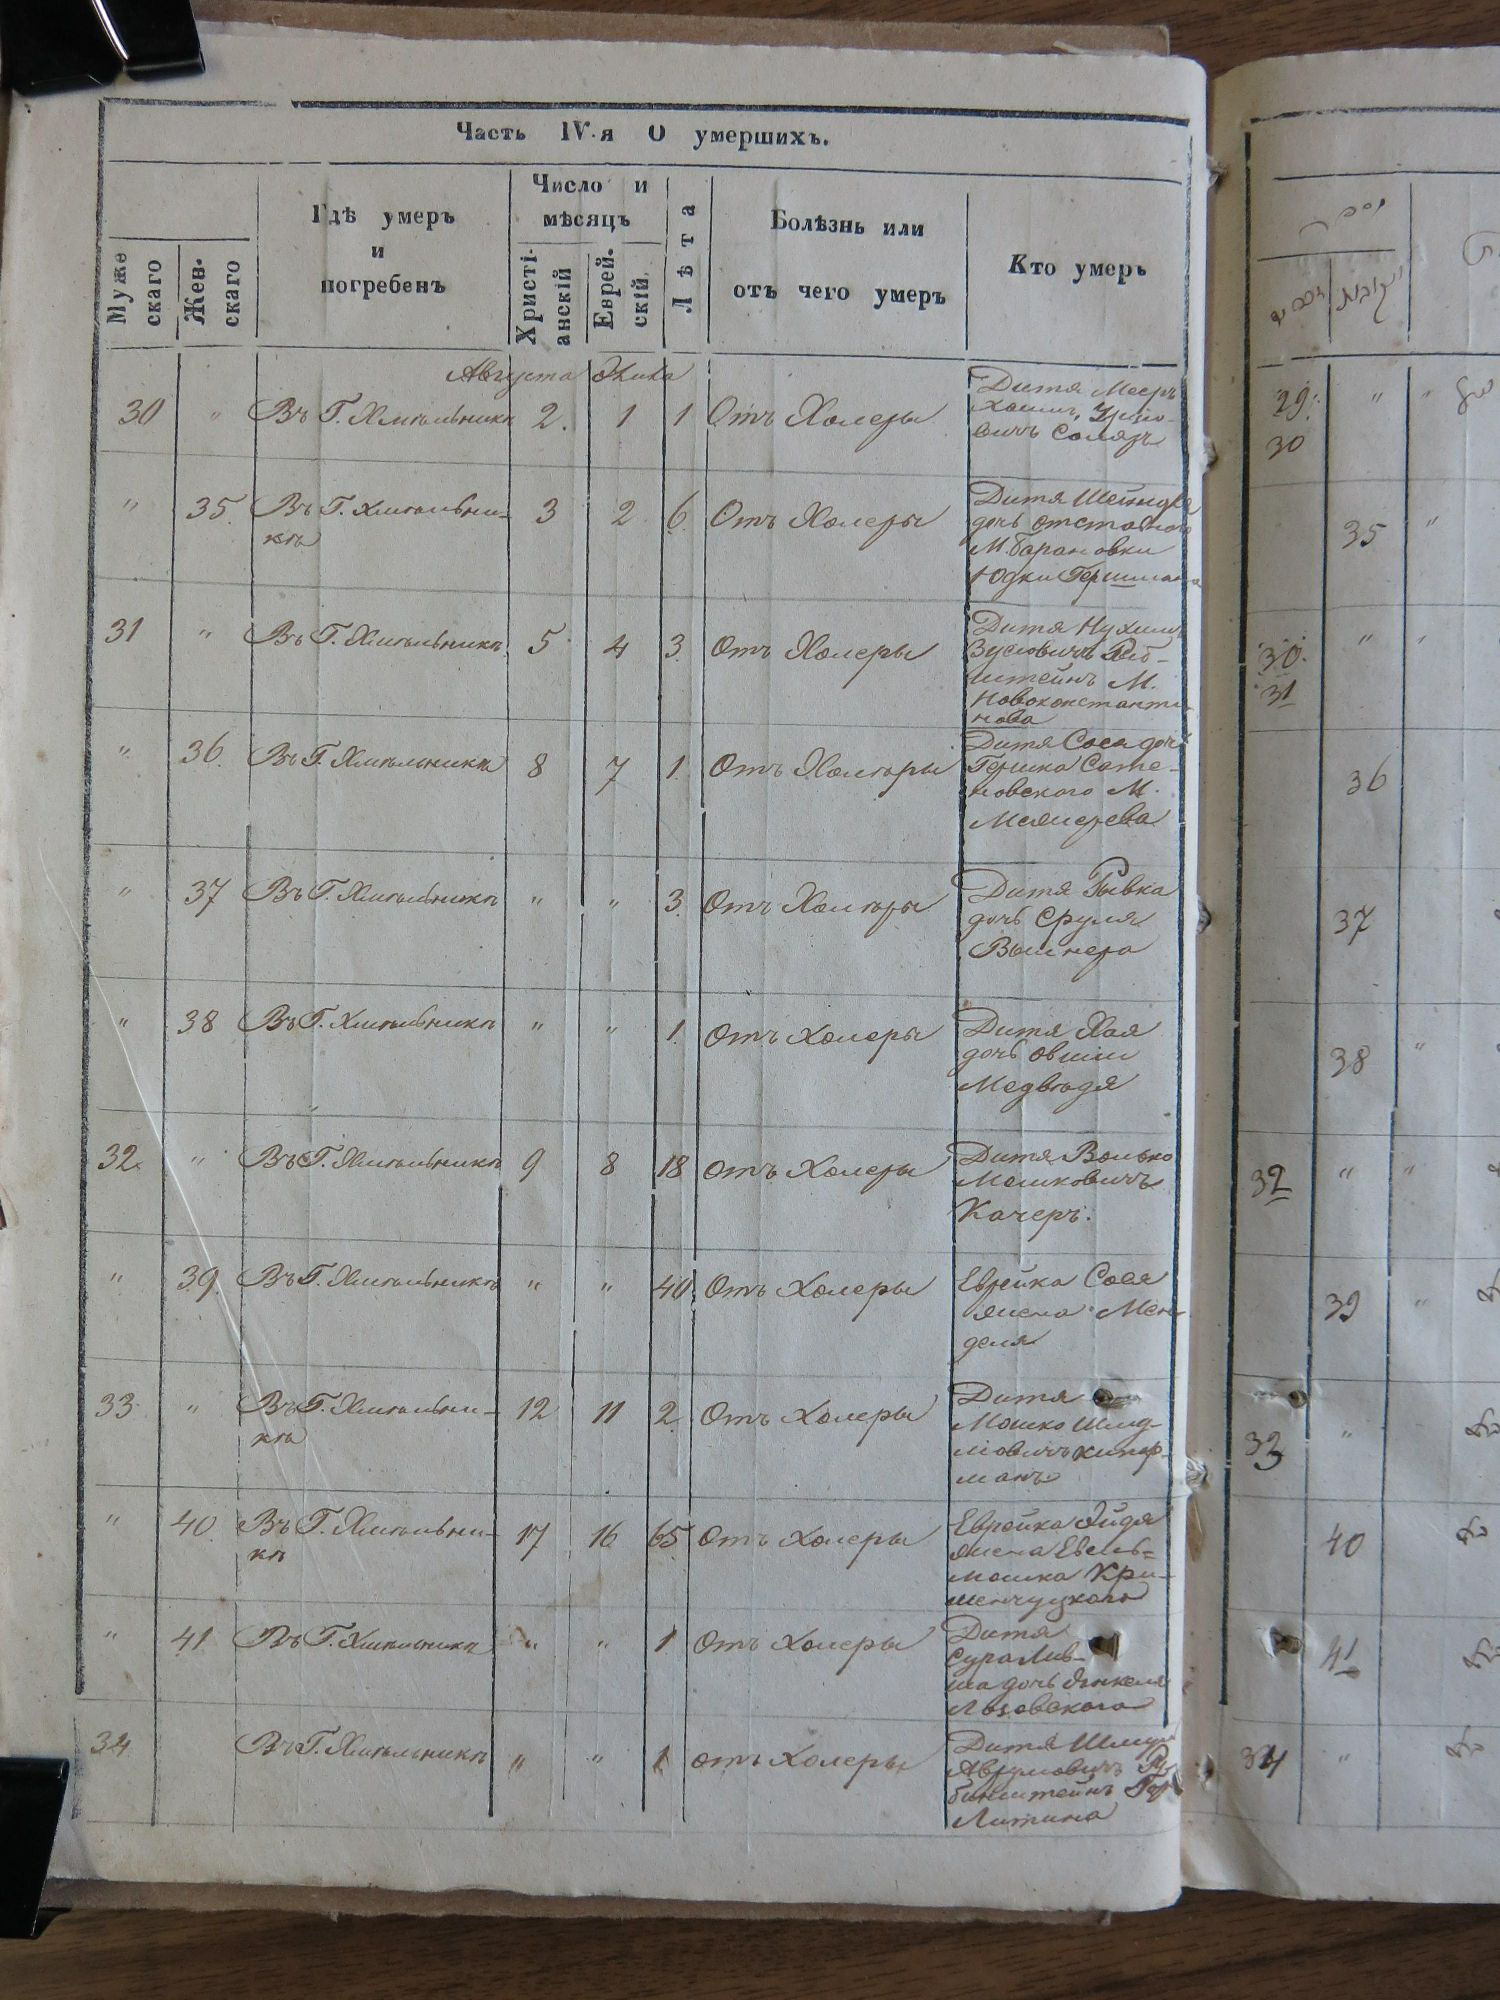 Часть IV-я О умершихъ.
Муже скаго
Жен-скаго
Гдѣ умеръ
и
погребенъ
Число и
мѣсяцъ
Христі-анскій
Еврей-скій
Лѣта
Болѣзнь или
отъ чего умеръ
Кто умеръ
Августа
30 " Въ Г. Хмѣльникѣ 2. 1 1 Отъ Холеры
Дитя Мееръ
Хаимъ
Соляръ
" 35. Въ Г. Хмѣльни-
кѣ
3 2 6. Отъ Холеры
Дитя
дочь отставного
М. Барановки
Юдки Гершмана
31 " Въ Г. Хмѣльникѣ 5 4 3. Отъ Холеры
Дитя Нухимъ
Зусiовичъ
штейнъ М.
Новоконстанти-
нова
" 36. Въ Г. Хмѣльникѣ 8 7 1. Отъ Холѣры
Дитя Соса дочь
Гершка Сата-
новского М.
" 37 Въ Г. Хмѣльникѣ " " 3. Отъ Холѣры
Дитя Рывка
дочь Сруля
" 38 Въ Г. Хмѣльникѣ " " 1. Отъ Холеры
Дитя Хая
дочь Овшии
Медвѣдя
32. " Въ Г. Хмѣльникѣ 9 8 18 Отъ Холеры
Дитя Волько
Мошковичъ
Качеръ.
" 39. Въ Г. Хмѣльникѣ " " 40. Отъ Холеры
Еврейка Сося
жена Мен-
деля
33 " Въ Г. Хмѣльни-
кѣ
12 11 2. Отъ Холеры
Дитя
Мошко
манъ
" 40. Въ Г. Хмѣльни-
кѣ
17 16 65. Отъ Холеры
Еврейка
жена
Мошка Кри-
менчуцкого
" 41. Въ Г. Хмѣльникѣ " " 1 Отъ Холеры
Дитя
Сура
дочь Янкеля
Лозовского
34 Въ Г. Хмѣльникѣ " " 1 отъ Холеры
Дитя
Аврумовичъ Ру-
бинштейнъ
Литина
29.
30
35
30.
31
36
37
38
32
39
33
40
41
34